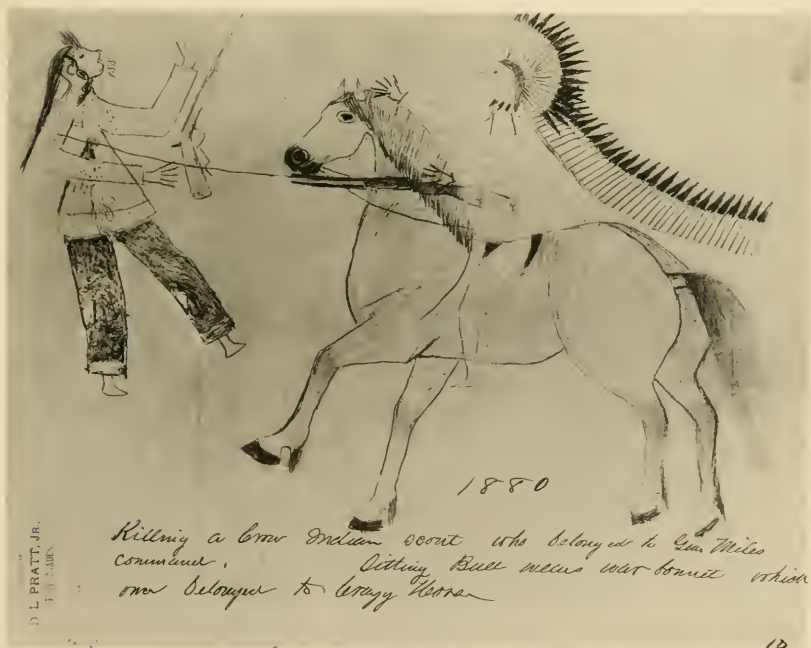 1880
Killing a Crow Indian scout who belonged to Gen. Miles
command. Sitting Bull wears war bonnet which
once belonged to Crazy Horse
D L PRATT, JR.